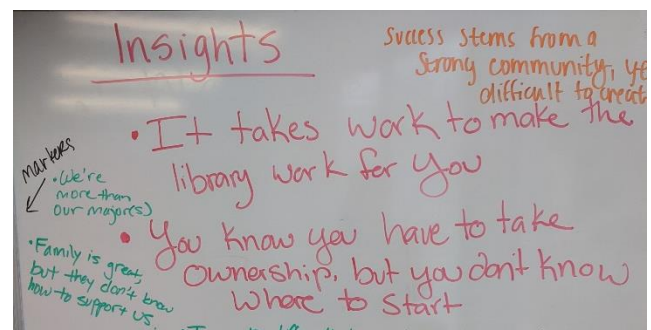 Insights
Success stems from a
strong community, ye
difficult to creat
• It takes work to make the
library work for you
• You know you have to take
ownership, but you don't know
where to start
markers
• We're
more than
our major(s)
• Family is great,
but they don't know
how to support us